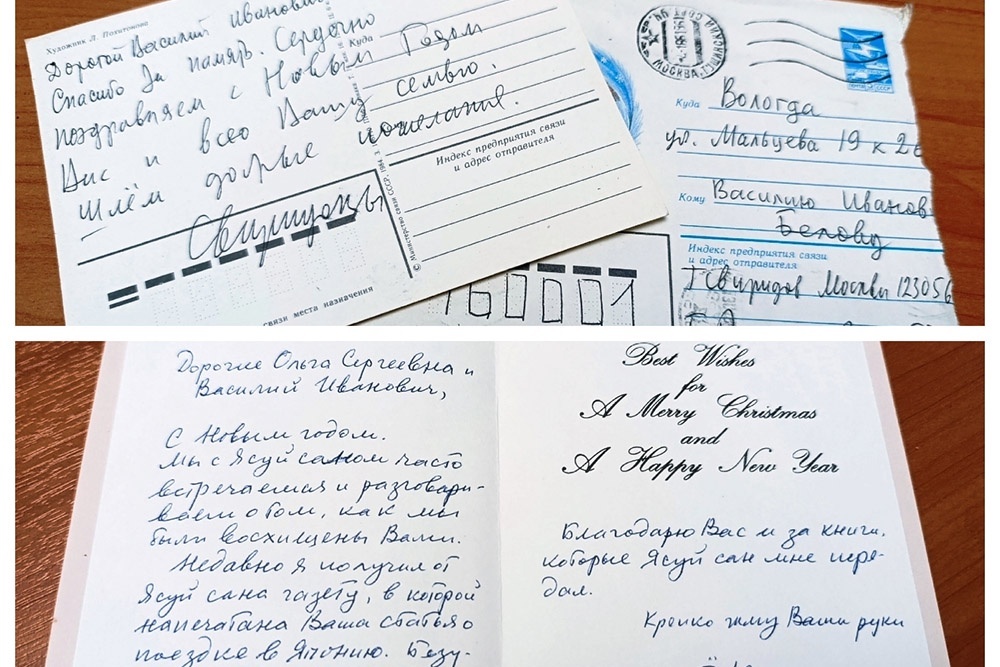 Художник Л. Похитонова
Дорогой Василий Иванович
Спасибо за память. Сердечно
поздравляем с Новым Годом
Вас и всю Вашу семью.
Шлём добрые пожелания.
Свиридовы
Куда
Индекс предприятия связи
и адрес отправителя
© Министерство связи СССР, 1984
связи места назначения
МОСКВА
ПОЧТА СССР
Куда Вологда
ул. Мальцева 19 к 26
Кому Василию Иванов
Белову
Индекс предприятия связи
и адрес отправителя
Г Свиридов Москва 123056
160001
Дорогие Ольга Сергеевна и
Василий Иванович,
С Новым годом.
Мы с Ясуй саном часто
встречаемся и разговари-
ваем о том, как мы
были восхищены Вами.
Недавно я получил от
Ясуй сана газету, в которой
напечатана Ваша статья о
поездке в Японию. Безу-
Best Wishes
for
A Merry Christmas
and
A Happy New Year
Благодарю Вас и за книги,
которые Ясуй сан мне пере-
дал.
Крепко жму Ваши руки